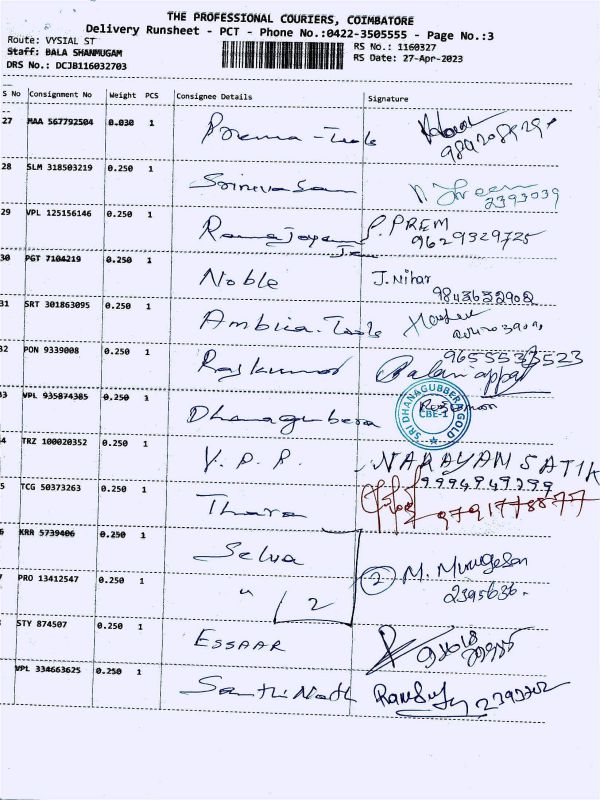 THE PROFESSIONAL COURIERS, COIMBATORE
Delivery Runsheet - PCT - Phone No.:0422-3505555 - Page No.:3
Route: VYSIAL ST
RS No.: 1160327
Staff: BALA SHANMUGAM
RS Date: 27-Apr-2023
DRS No.: DCJB116032703
S No Consignment No Weight PCS Consignee Details Signature
27 MAA 567792504 0.030 1 Prema-Tools
28 SLM 318503219 0.250 1 Srinivasan
2393039
29 VPL 125156146 0.250 1 P.PREM
9629329725
30 PGT 7104219 0.250 1 Noble J. Nihar
9843652902
31 SRT 301863095 0.250 1 Ambica-Tools
32 PON 9339008 0.250 1 Rajkumar 9655533523
Palaniappa
33 VPL 935874385 0.250 1 Dhanagubera
SRI DHANAGUBBERA GOLD
CBE-1
4 TRZ 100020352 0.250 1 V.P.R. NARAYAN SATIK
9994949299
5 TCG 50373263 0.250 1 Thara
9791778877
6 KRR 5739406 0.250 1 Selva
2 M. Murugesan
7 PRO 13412547 0.250 1 " 2
2395636.
STY 874507 0.250 1 ESSAAR
VPL 334663625 0.250 1 Santhi Nath